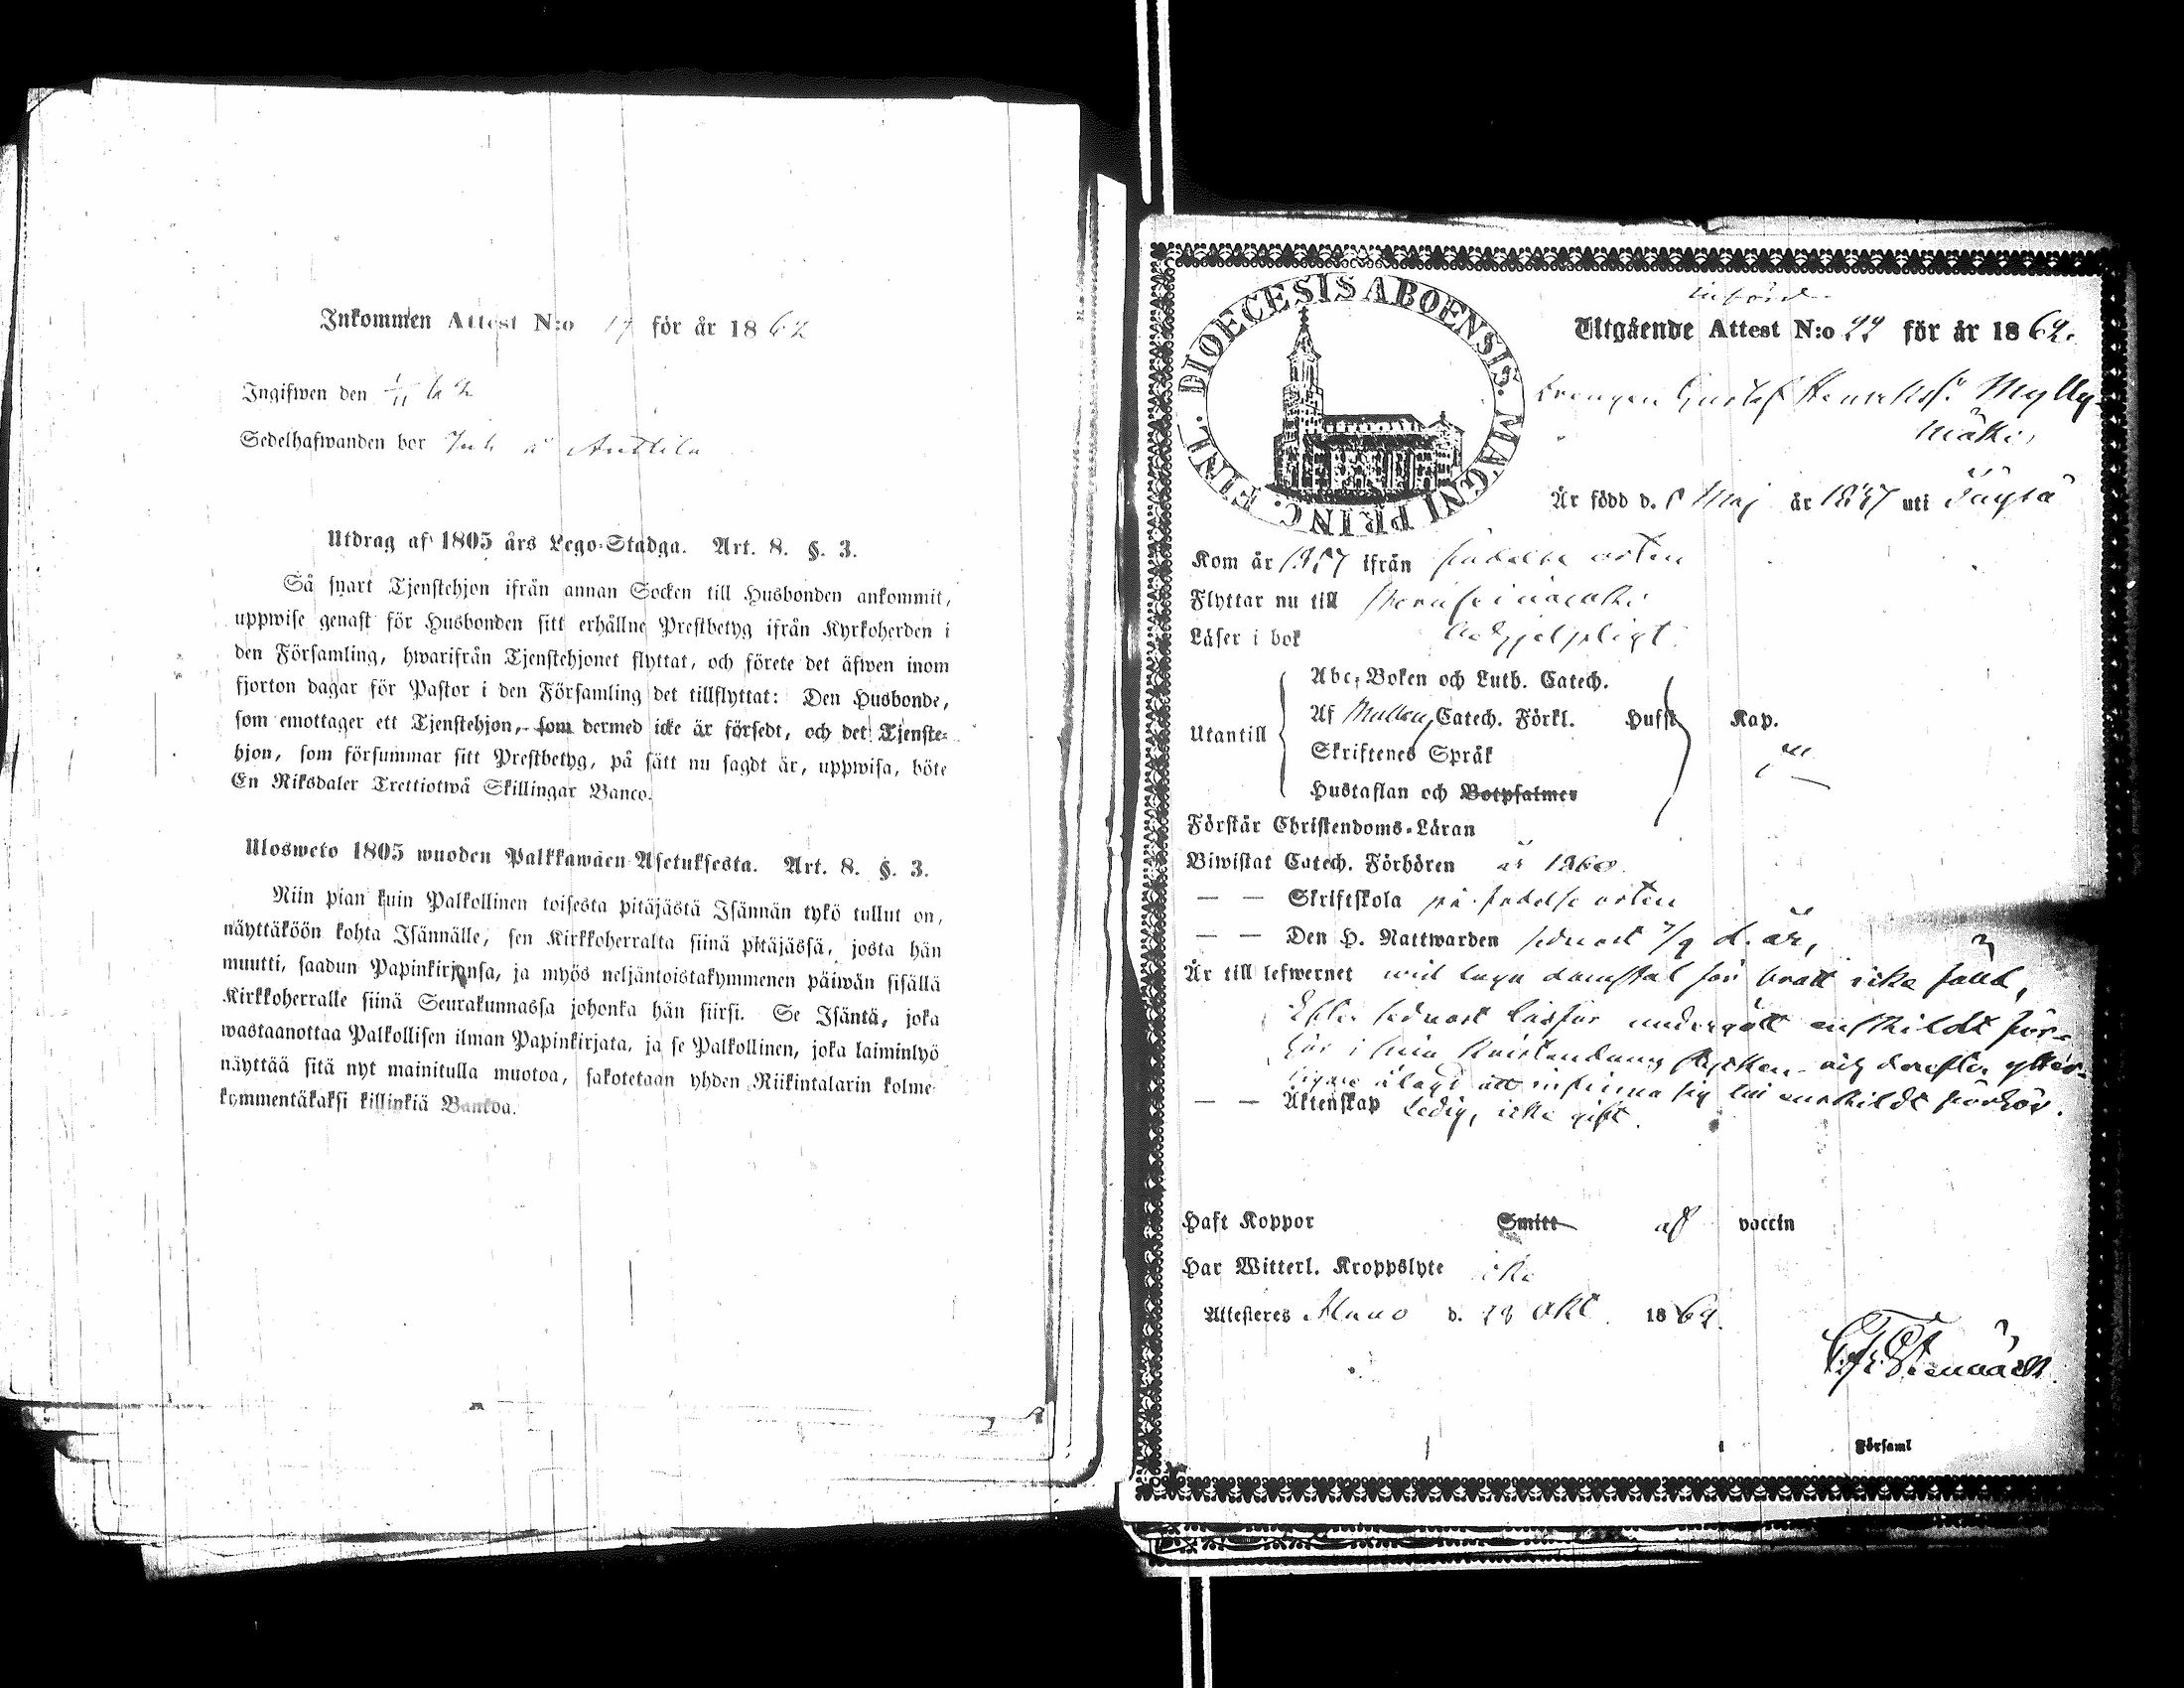 Inkommen Attest N:o 17 för år 1862
Ingifwen den 1/11 62
Sedelhafwanden bor Anttila
Utdrag af 1805 års Lego-Stadga. Art. 8. §. 3.
Så snart Tjenstehjon ifrån annan Socken till Husbonden ankommit,
uppwise genast för Husbonden sitt erhållne Prestbetyg ifrån Kyrkoherden i
den Församling, hwarifrån Tjenstehjonet flyttat, och förete det äfwen inom
fjorton dagar för Pastor i den Församling det tillflyttat: Den Husbonde,
som emottager ett Tjenstehjon, som dermed icke är försedt, och det Tjenste-
hjon, som försummar sitt Prestbetyg, på sätt nu sagdt är, uppwisa, böte
En Riksdaler Trettiotwå Skillingar Banco.
Ulosweto 1805 wuoden Palkkawäen Asetuksesta. Art. 8. §. 3.
Niin pian kuin Palkollinen toisesta pitäjästä Isännän tykö tullut on,
näyttäköön kohta Isännälle, sen Kirkkoherralta siinä pitäjässä, josta hän
muutti, saadun Papinkirjansa, ja myös neljäntoistakymmenen päiwän sisällä
Kirkkoherralle siinä Seurakunnassa johonka hän siirsi. Se Isäntä, joka
wastaanottaa Palkollisen ilman Papinkirjata, ja se Palkollinen, joka laiminlyö
näyttää sitä nyt mainitulla muotoa, sakotetaan yhden Riikintalarin kolme-
kymmentäkaksi killinkiä Bankoa.
DIOECESIS ABOENSIS. MAGNI PRINC. FINL.
införd
Utgående Attest N:o 22 för år 1862.
Drengen Gustaf Henrikss. Mylly-
mäki
Är född d. 8 Maj år 1837 uti
Kom år 1857 ifrån födelse orten
Flyttar nu till
Läser i bok nödhjelpligt.
Utantill
Abc-Boken och Luth. Catech.
Af Catech. Förkl. Hufst Kap.
Skriftenes Språk
Hustaflan och Botpsalmer
Förstår Christendoms-Läran
Biwistat Catech. Förhören år 1860
— — Skriftskola på födelse orten
— — Den H. Nattwarden sednast 7/9 d. år,
Är till lefwernet vid laga domstol för brott icke fälld,
Efter sednast läsför undergått enskildt för-
hör i sina Kristendoms stycken och derefter ytter-
ligare ålagd att infinna sig till enskildt förhör.
— — Äktenskap Ledig, icke gift.
Haft Koppor Smitt af vaccin
Har Witterl. Kroppslyte icke
Attesteres Alavo d. 28 Okt. 1862.
Församl